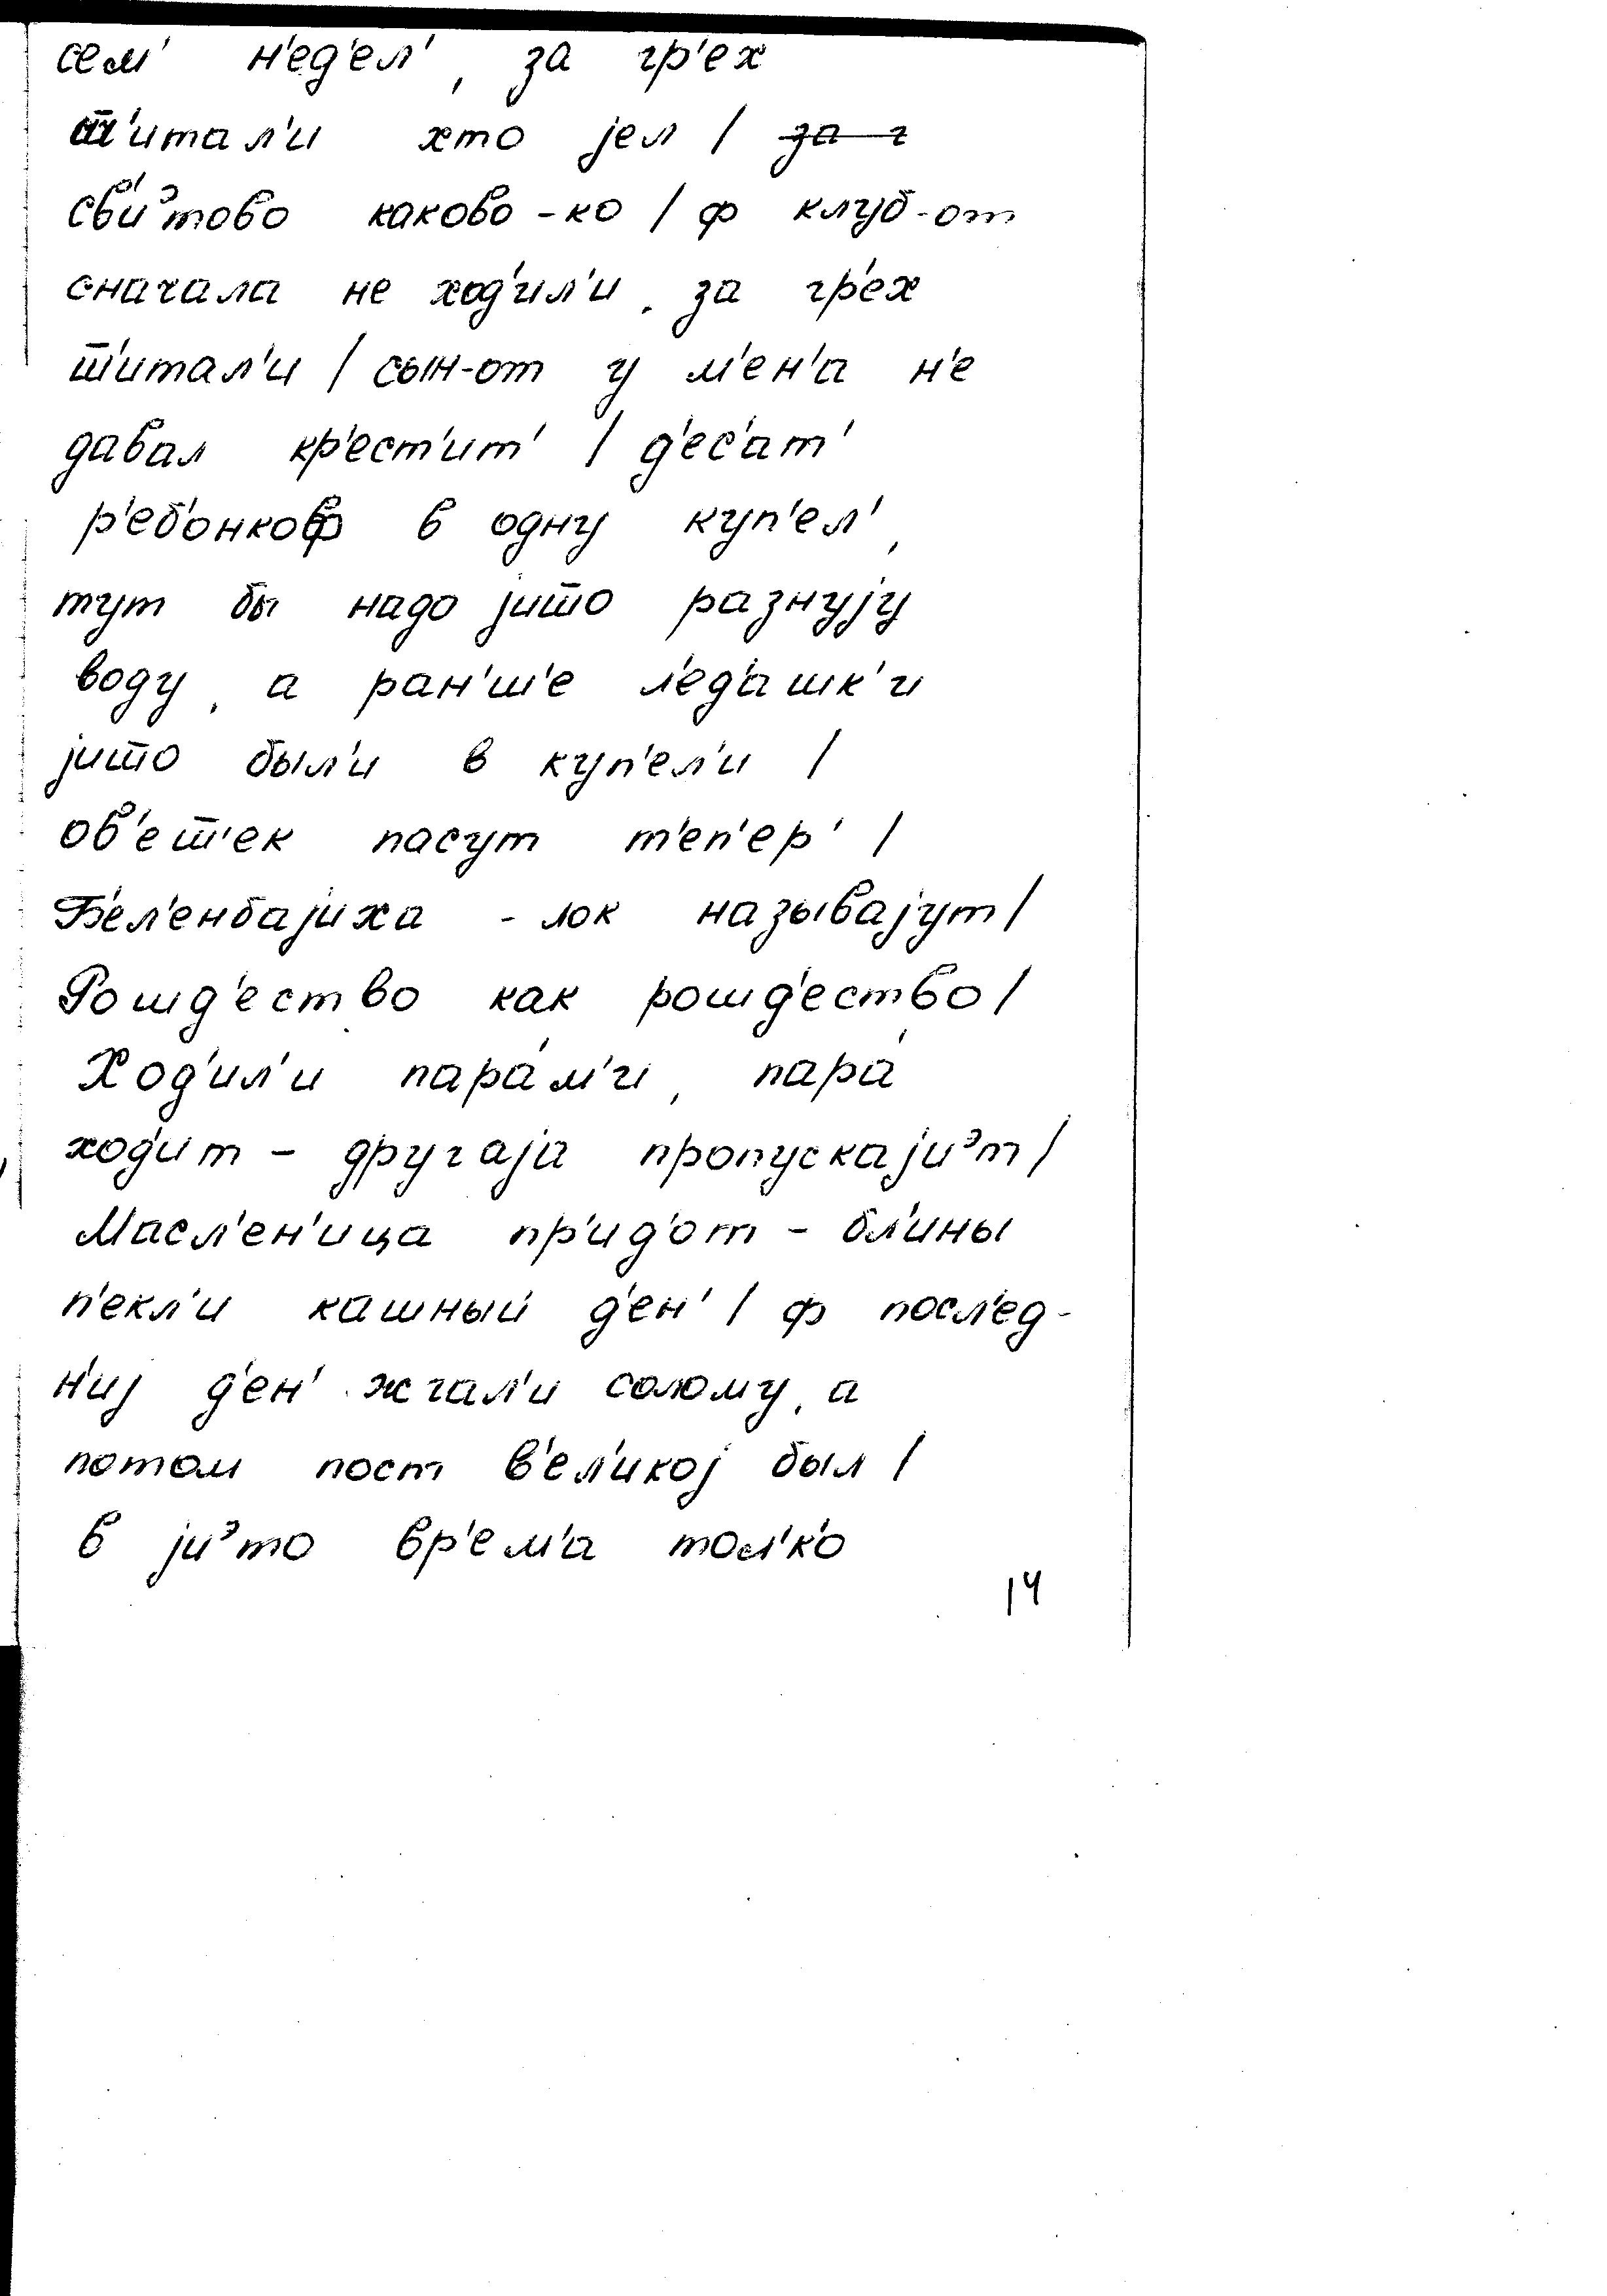 сем' н'ед'ел', за гр'ех
ш̅'итал'и хто јел / ~~за г~~
св'иᵊтово каково-ко / ф клуб-от
сначала не ход'ил'и, за гр'ех
ш̅'итал'и / сын-от у м'ен'а н'е
давал кр'ест'ит' / д'ес'ат'
р'еб'онкоф в одну куп'ел',
тут бы надо јиш̅о разнују
воду, а ран'ш'е л'ед'ашк'и
јиш̅о был'и в куп'ел'и /
ов'еш̅'ек пасут т'еп'ер' /
Б'ел'енбајиха - лок называјут /
Рошд'ество как рошд'ество /
Ход'ил'и пара́м'и, пара́
ход'ит - другаја пропускајиᵊт /
Масл'ен'ица пр'ид'от - бл'ины
п'екл'и кашный д'ен' / ф посл'ед-
н'иј д'ен' жгал'и солому, а
потом пост в'ел'икој был /
в јиᵊто вр'ем'а тол'к'о
14